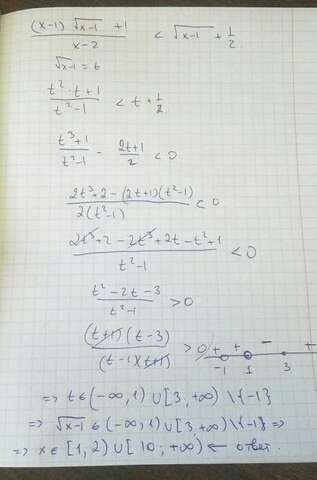 ((x-1)√(x-1) + 1)/(x-2) < √(x-1) + 1/2
√x-1 = t
(t²·t+1)/(t²-1) < t + 1/2
(t³+1)/(t²-1) - (2t+1)/2 < 0
(2t³+2-(2t+1)(t²-1))/(2(t²-1)) < 0
(2t³+2-2t³+2t-t²+1)/(t²-1) < 0
(t²-2t-3)/(t²-1) > 0
((t+1)(t-3))/((t-1)(t+1)) > 0 + + - +
-1 1 3
=> t∈(-∞,1)∪[3,+∞)\{-1}
=> √x-1 ∈(-∞,1)∪[3,+∞)\{-1} =>
=> x∈[1,2)∪[10;+∞) ← ответ.